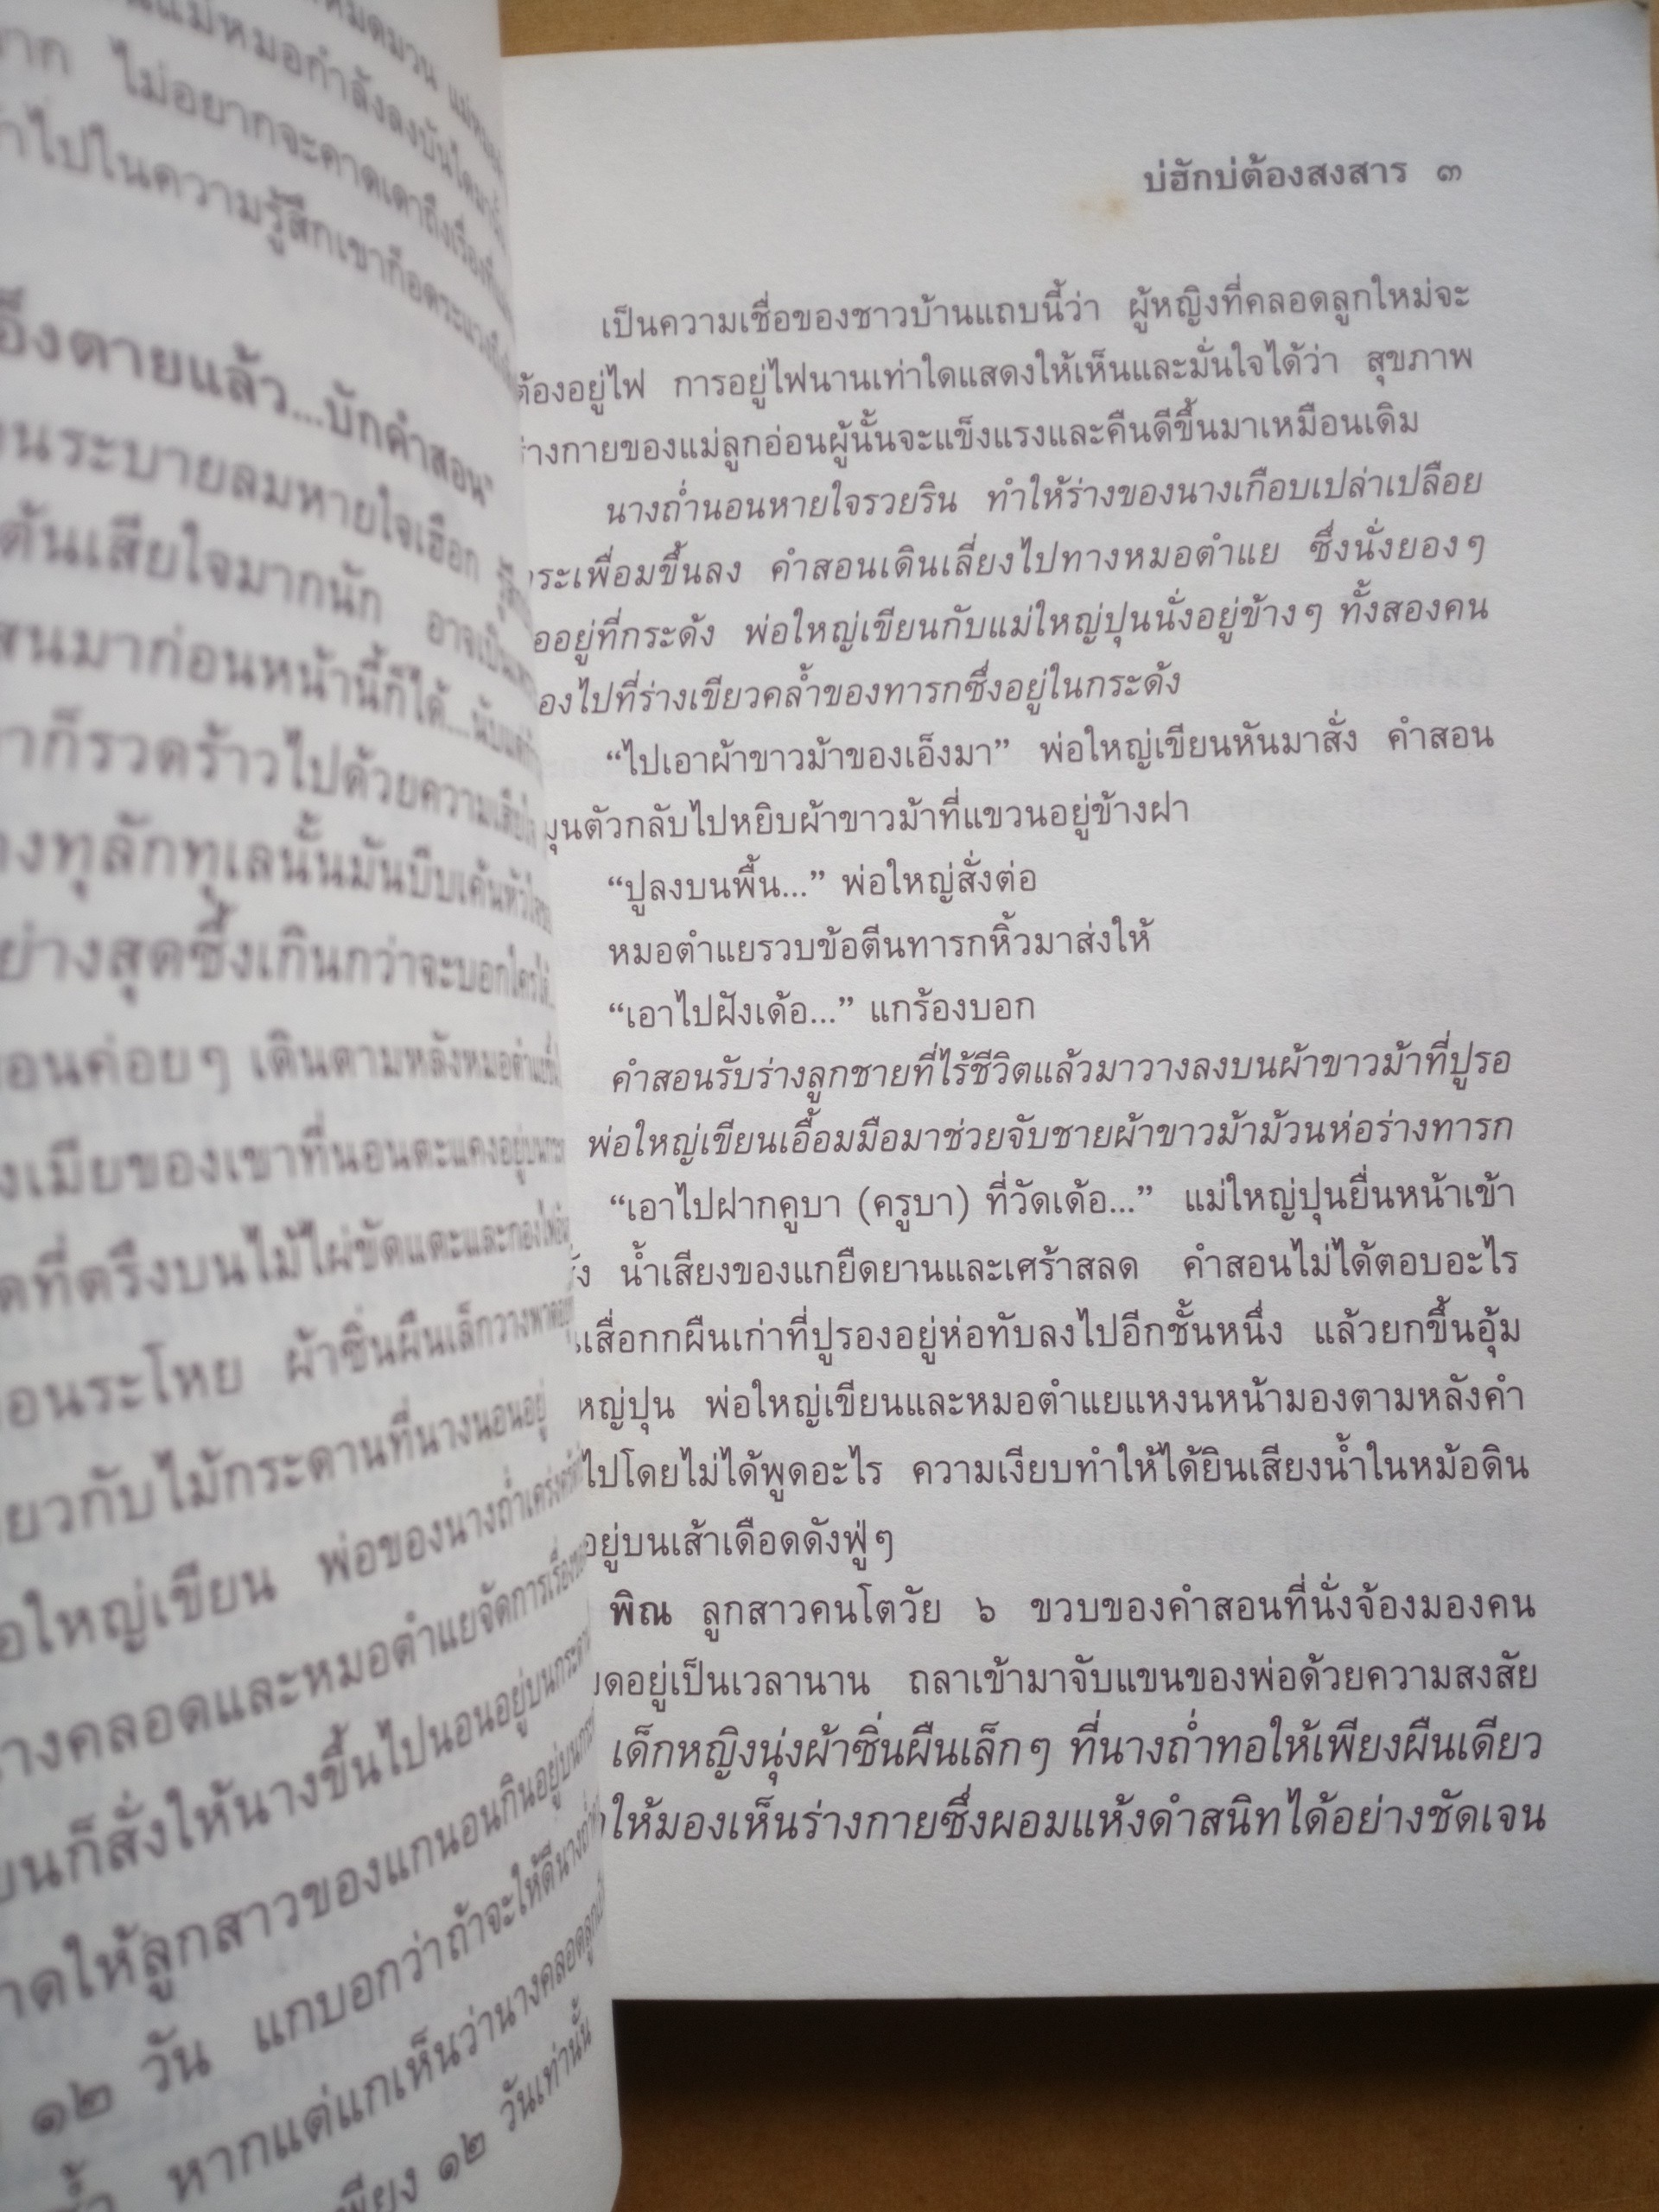 หมดมวน
แม่หมอกำลังลงบันไดมา
ไม่อยากจะคาดเดาถึงเรื่องที่
ไปในความรู้สึกเขาก็อดระแวง
อึ่งตายแล้ว...บักคำสอน"
ระบายลมหายใจเฮือก
เสียใจมากนัก อาจเป็น
มาก่อนหน้านี้ก็ได้...นับแต่
ก็รวดร้าวไปด้วยความ
ทุลักทุเลนั้นมันบีบเค้นหัวใจ
อย่างสุดซึ้งเกินกว่าจะบอกใครได้
ค่อยๆ เดินตามหลังหมอตำแย
เมียของเขาที่นอนตะแคงอยู่บน
ที่ตรึงบนไม้ไผ่ขัดแตะและกอง
ระโหย ผ้าซิ่นผืนเล็กวางพาด
กับไม้กระดานที่นางนอนอยู่
ใหญ่เขียน พ่อของนางถ่ำ
คลอดและหมอตำแยจัดการเรื่อง
ก็สั่งให้นางขึ้นไปนอนอยู่บนกระดาน
ให้ลูกสาวของแกนอนกินอยู่บน
๑๒ วัน แกบอกว่าถ้าจะให้ดีนาง
หากแต่แกเห็นว่านางคลอดลูก
เพียง ๑๒ วันเท่านั้น
บ่ฮักบ่ต้องสงสาร ๓
เป็นความเชื่อของชาวบ้านแถบนี้ว่า ผู้หญิงที่คลอดลูกใหม่จะ
ต้องอยู่ไฟ การอยู่ไฟนานเท่าใดแสดงให้เห็นและมั่นใจได้ว่า สุขภาพ
ร่างกายของแม่ลูกอ่อนผู้นั้นจะแข็งแรงและคืนดีขึ้นมาเหมือนเดิม
นางถ่ำนอนหายใจรวยริน ทำให้ร่างของนางเกือบเปล่าเปลือย
กระเพื่อมขึ้นลง คำสอนเดินเลี่ยงไปทางหมอตำแย ซึ่งนั่งยองๆ
อยู่ที่กระด้ง พ่อใหญ่เขียนกับแม่ใหญ่ปุนนั่งอยู่ข้างๆ ทั้งสองคน
มองไปที่ร่างเขียวคล้ำของทารกซึ่งอยู่ในกระด้ง
“ไปเอาผ้าขาวม้าของเอ็งมา” พ่อใหญ่เขียนหันมาสั่ง คำสอน
หมุนตัวกลับไปหยิบผ้าขาวม้าที่แขวนอยู่ข้างฝา
“ปูลงบนพื้น...” พ่อใหญ่สั่งต่อ
หมอตำแยรวบข้อตีนทารกหิ้วมาส่งให้
“เอาไปฝังเด้อ...” แกร้องบอก
คำสอนรับร่างลูกชายที่ไร้ชีวิตแล้วมาวางลงบนผ้าขาวม้าที่ปูรอ
พ่อใหญ่เขียนเอื้อมมือมาช่วยจับชายผ้าขาวม้าม้วนห่อร่างทารก
“เอาไปฝากคูบา (ครูบา) ที่วัดเด้อ...” แม่ใหญ่ปุนยื่นหน้าเข้า
น้ำเสียงของแกยืดยานและเศร้าสลด คำสอนไม่ได้ตอบอะไร
เสื่อกกผืนเก่าที่ปูรองอยู่ห่อทับลงไปอีกชั้นหนึ่ง แล้วยกขึ้นอุ้ม
ใหญ่ปุน พ่อใหญ่เขียนและหมอตำแยแหงนหน้ามองตามหลังคำ
ไปโดยไม่ได้พูดอะไร ความเงียบทำให้ได้ยินเสียงน้ำในหม้อดิน
อยู่บนเส้าเดือดดังฟู่ๆ
พิณ ลูกสาวคนโตวัย ๖ ขวบของคำสอนที่นั่งจ้องมองคน
อยู่เป็นเวลานาน ถลาเข้ามาจับแขนของพ่อด้วยความสงสัย
เด็กหญิงนุ่งผ้าซิ่นผืนเล็กๆ ที่นางถ่ำทอให้เพียงผืนเดียว
ให้มองเห็นร่างกายซึ่งผอมแห้งดำสนิทได้อย่างชัดเจน